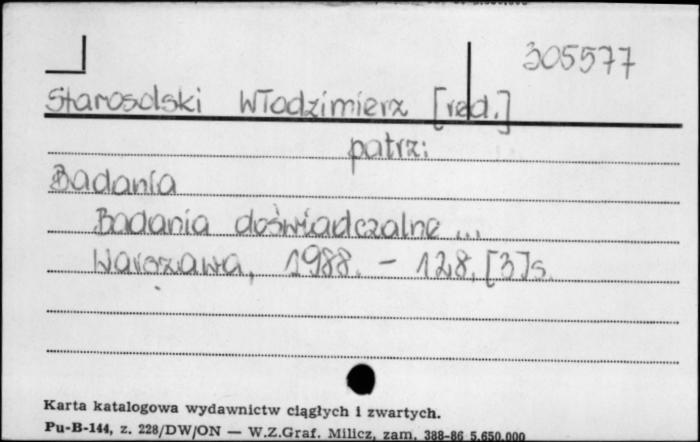 305577
Starosolski Włodzimierz [red.]
patrz:
Badania
Badania doświadczalne ...
Warszawa, 1988. - 128, [3]s.
Karta katalogowa wydawnictw ciągłych i zwartych.
Pu-B-144, z. 228/DW/ON — W.Z.Graf. Milicz, zam. 388-86 5.650.000